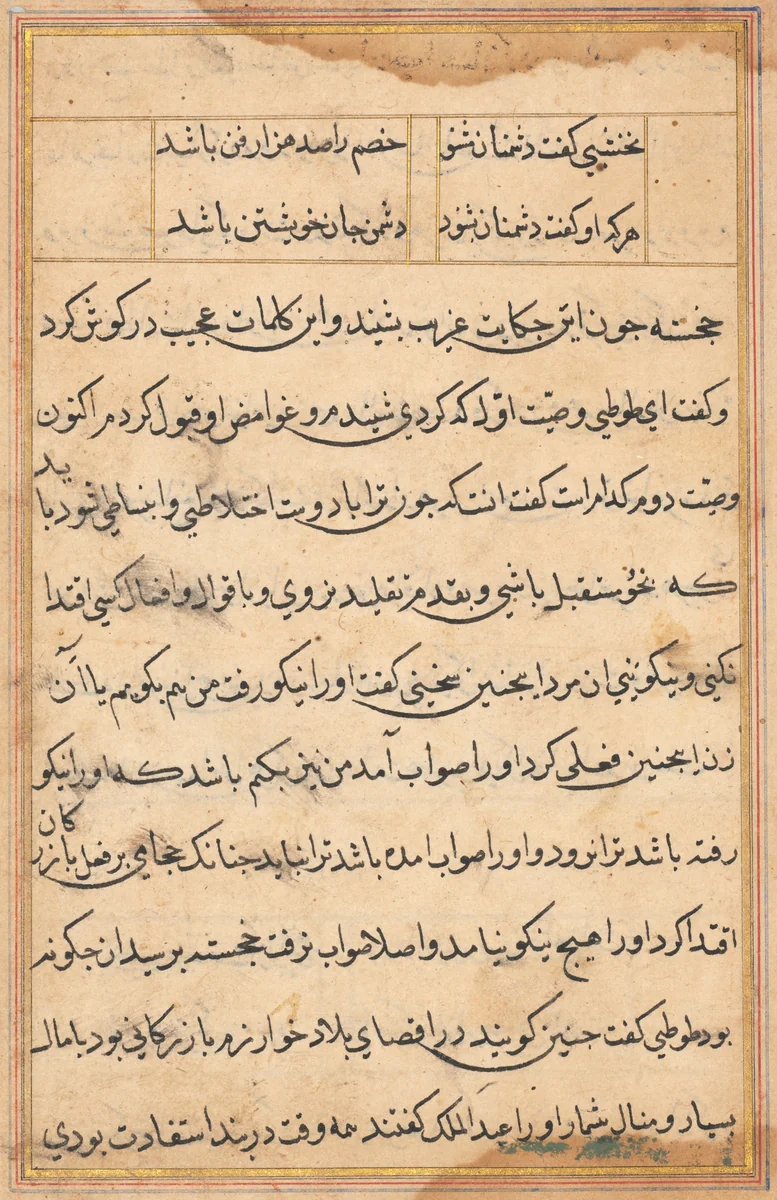 نخشبی گفت دشمنان مشنو خصم را صد هزار فن باشد
هرکه او گفت دشمنان بشنود دشمن جان خویشتن باشد
خجسته جون این حکایت غریب بشنید و این کلمات عجیب در کوش کرد
و کفت ای طوطی وصیّت اوّل که کردی شنیدم و غوامض او قبول کردم اکنون
وصیّت دوم کدام است کفت انست که جون ترا با دوست اختلاطی و انبساطی شود باید
که بخو مستقبل باشی و بقدم تقلید نروی و باقوال و افعال کسی اقتدا
نکنی و نیکو نبینی ان مرد اینجنین سخنی کفت او را نیکو رفت من هم بکویم یا آن
زن اینجنین فعلی کرد او را صواب آمد من نیز بکنم باشد که او را نیکو
رفته باشد ترا نرود و او را صواب امده باشد ترا نیاید جنانک حجامی بر فعل بازرکان
اقتدا کرد او را هیج نیکو نیامد و اصلا صواب نرفت خجسته برسید ان جکونه
بود طوطی کفت جنین کویند در اقصای بلاد خوارزم بازرکانی بود با مال
بسیار و منال بی‌شمار او را عبد الملک کفتند همه وقت در بند استفادت بودی